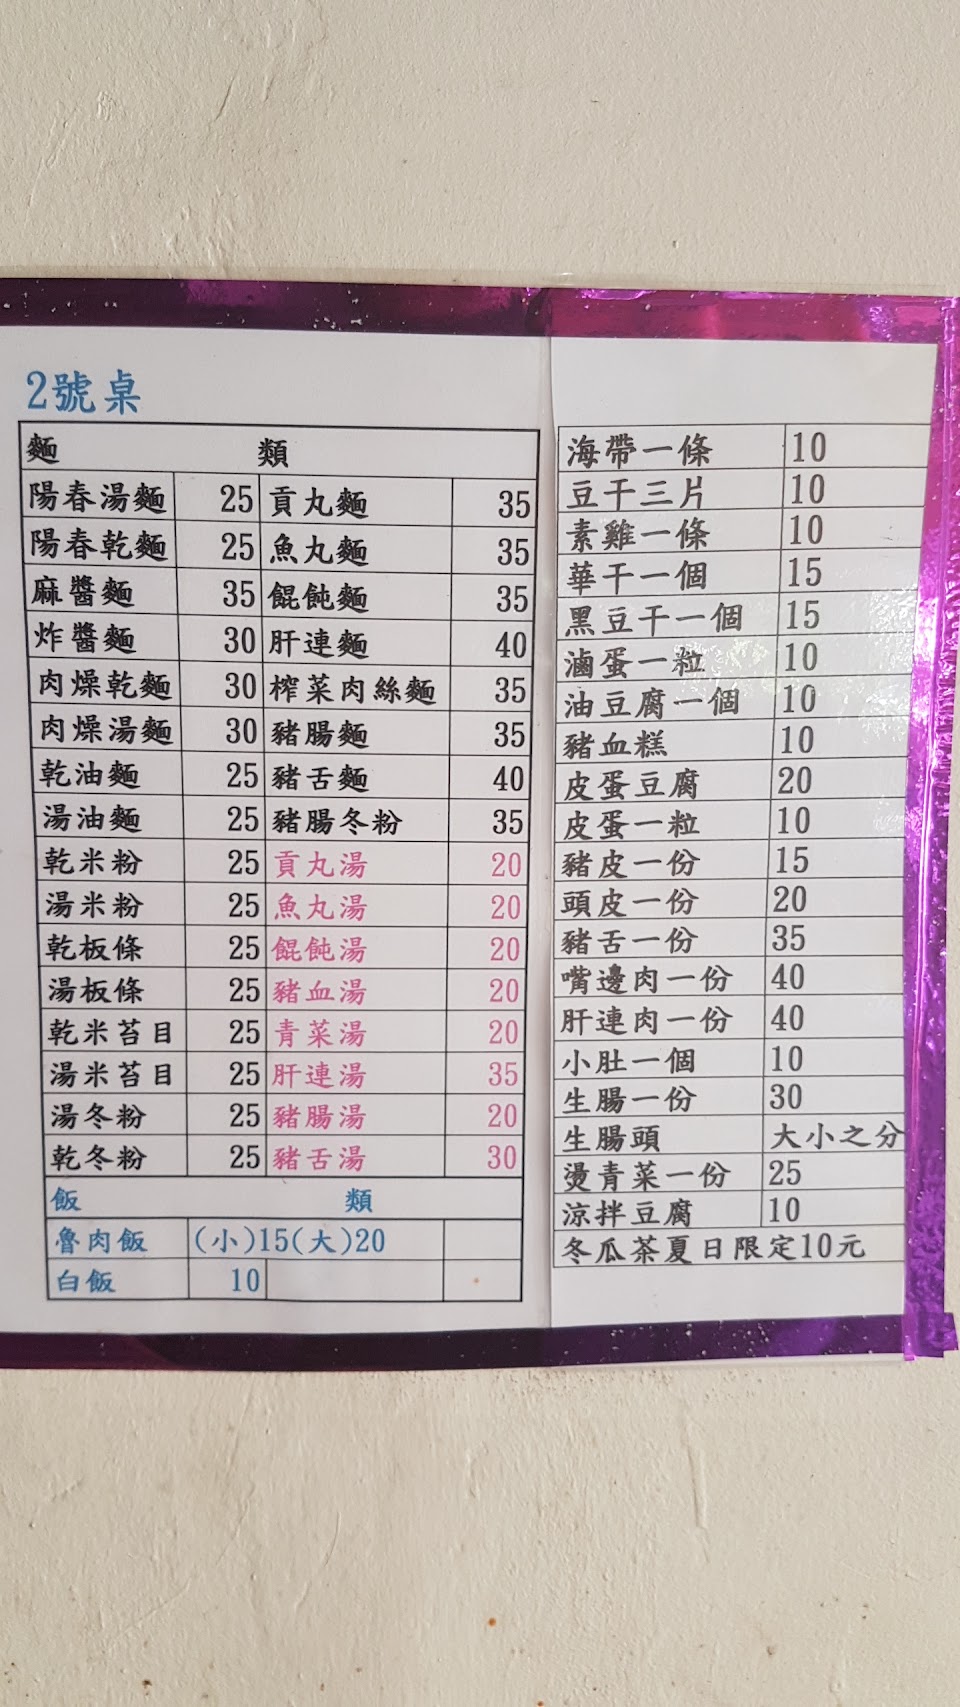 2號桌
麵 類
陽春湯麵 25 貢丸麵 35
陽春乾麵 25 魚丸麵 35
麻醬麵 35 餛飩麵 35
炸醬麵 30 肝連麵 40
肉燥乾麵 30 榨菜肉絲麵 35
肉燥湯麵 30 豬腸麵 35
乾油麵 25 豬舌麵 40
湯油麵 25 豬腸冬粉 35
乾米粉 25 貢丸湯 20
湯米粉 25 魚丸湯 20
乾板條 25 餛飩湯 20
湯板條 25 豬血湯 20
乾米苔目 25 青菜湯 20
湯米苔目 25 肝連湯 35
湯冬粉 25 豬腸湯 20
乾冬粉 25 豬舌湯 30
飯 類
魯肉飯 (小)15(大)20
白飯 10
海帶一條 10
豆干三片 10
素雞一條 10
華干一個 15
黑豆干一個 15
滷蛋一粒 10
油豆腐一個 10
豬血糕 10
皮蛋豆腐 20
皮蛋一粒 10
豬皮一份 15
頭皮一份 20
豬舌一份 35
嘴邊肉一份 40
肝連肉一份 40
小肚一個 10
生腸一份 30
生腸頭 大小之分
燙青菜一份 25
涼拌豆腐 10
冬瓜茶夏日限定10元